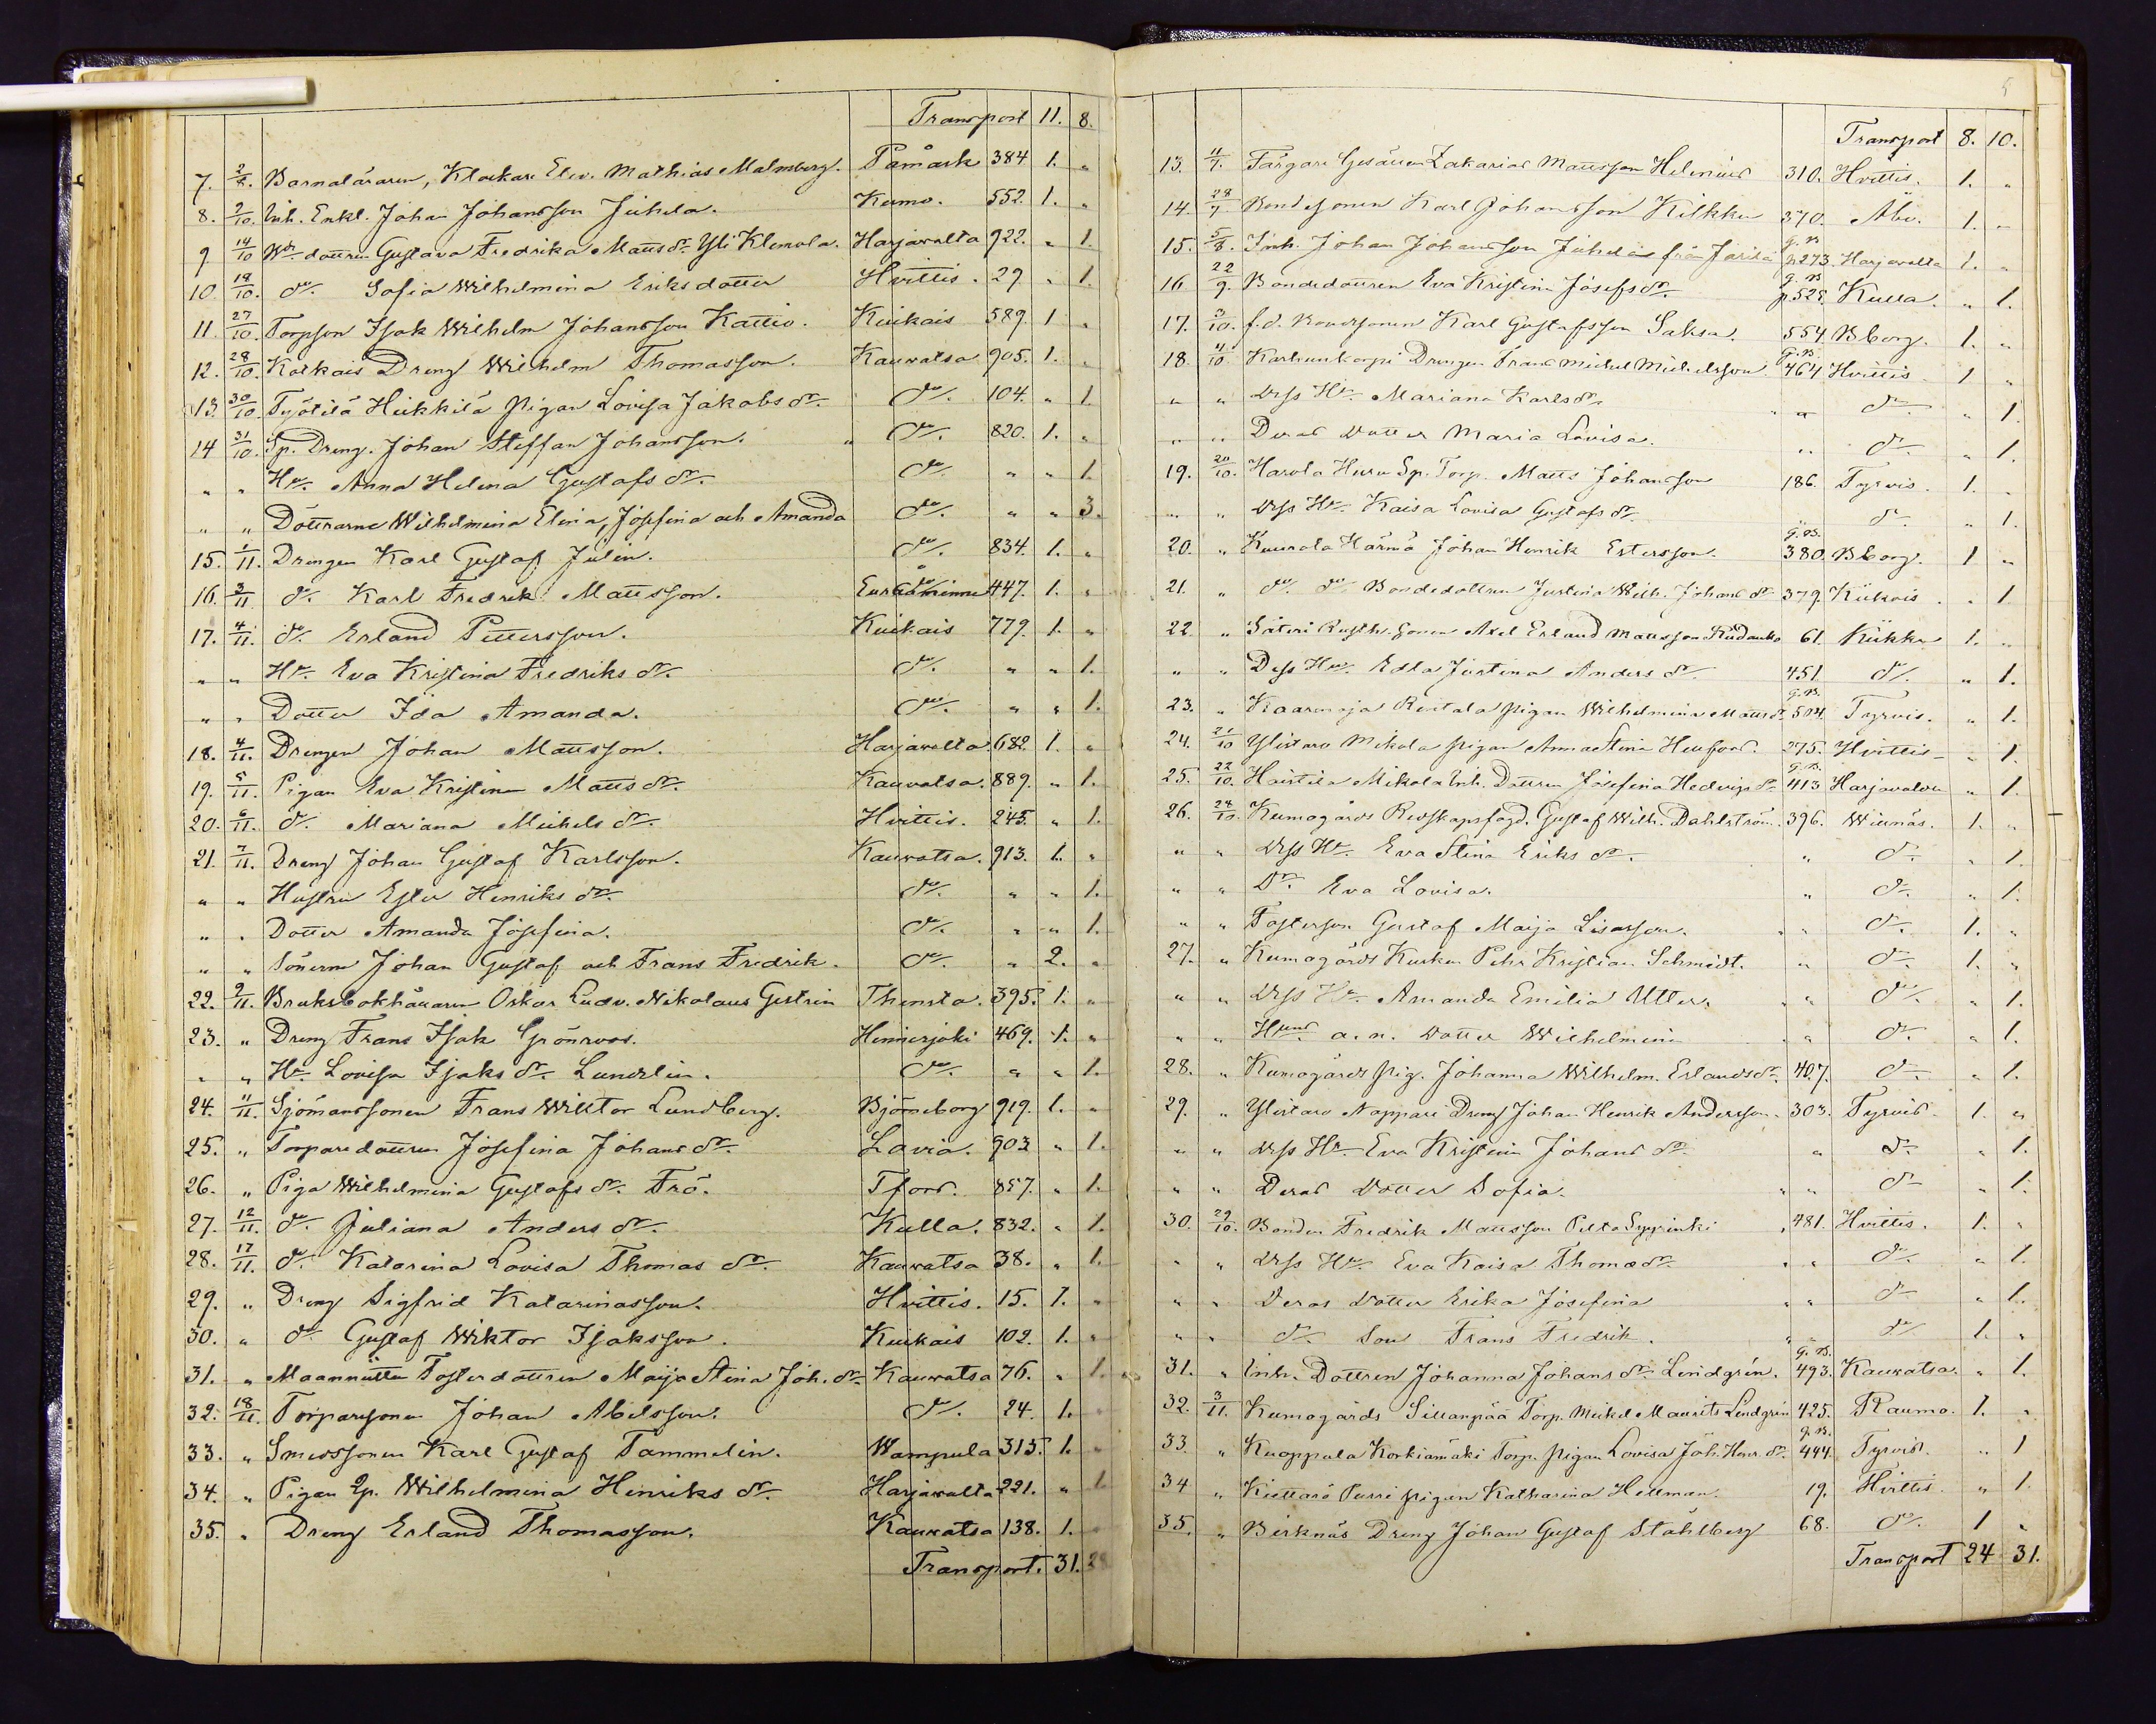 Transport 11. 8.
7. 2/8. Barnaläraren, Klockare Elev. Mathias Malmberg. Påmark 384 1. "
8. 9/10. Inh. Enkl. Johan Johansson Juhela. Kumo. 552. 1. "
9 14/10 dottren Gustava Fredrika Matts dr. Yli Klemola. Harjavalta 922. " 1.
10 18/10. dr. Sofia Wilhelmina Eriksdotter Hvittis. 29 " 1.
11. 27/10. Torpson Isak Wilhelm Johansson Kattio. Kiukais 589. 1 "
12. 28/10. Kotkais Dreng Wilhelm Thomasson. Kauvatsa 905. 1. "
13. 30/10. Työtilä Heikkilä pigan Lovisa Jakobs dr. do. 104. " 1.
14 31/10. Sp. Dreng. Johan Steffan Johansson. " do. 820. 1. "
" " Hu. Anna Helena Gustafs dr. do. " " 1.
" " Döttrarne Wilhelmina Elina, Josefina och Amanda do. " " 3.
15. 1/11. Drengen Karl Gustaf Julin. do. 834. 1. "
16. 3/11 do. Karl Fredrik Mattsson. Euraåminne 447. 1. "
17. 4/11. do. Erland Pettersson. Kiukais 779. 1. "
" " Hu. Eva Kristina Fredriks dr. do. " " 1.
" " Dotter Ida Amanda. do. " " 1.
18. 4/11. Drengen Johan Mattsson. Harjavalta 682. 1. "
19. 5/11. Pigan Eva Kristina Matts dr. Kauvatsa. 889. " 1.
20. 6/11. do. Mariana Michels dr. Hvittis. 245. " 1.
21. 7/11. Dreng Johan Gustaf Karlsson. Kauvatsa. 913. 1. "
" " Hustru Ester Henriks dr. do. " " 1.
" " Dotter Amanda Josefina. do. " " 1.
" " Sönerne Johan Gustaf och Frans Fredrik. do. " 2. "
22. 9/11. Bruksbokhållaren Oskar Ludv. Nikolaus Gestrin Thensta. 395. 1. "
23. " Dreng Frans Isak Grönroos. Hinnerjoki 469. 1. "
" " Hu. Lovisa Isaks dr. Lundelin. do. " " 1.
24. 11/11. Sjömanssonen Frans Wiktor Lundberg. Björneborg 919. 1. "
25. " Torparedottren Josefina Johans dr. Lavia. 903 " 1.
26. " Piga Wilhelmina Gustafs dr. Frö. Tfors. 857. " 1.
27. 12/11. do. Juliana Anders dr. Kulla. 832. " 1.
28. 17/11. do. Katarina Lovisa Thomas dr. Kauvatsa 38. " 1.
29. " Dreng Sigfrid Katarinasson. Hvittis. 15. 1. "
30. " do. Gustaf Wiktor Isaksson. Kiukais 102. 1. "
31. " Maannittu Fosterdottren Maija Stina Joh. dr. Kauvatsa 76. " 1.
32. 18/11. Torparesonen Johan Abelsson. do. 24. 1. "
33. " Smedssonen Karl Gustaf Tammelin. Wampula 315. 1. "
34. " Pigan Wilhelmina Henriks dr. Harjavalta 221. " 1
35. " Dreng Erland Thomasson. Kauvatsa 138. 1. "
Transport. 31. 28
5
Transport 8. 10.
13. 11/7. Färgare Gesällen Zakarias Mattsson Helenius 310. Hvittis. 1. "
14. 28/7 Bondesonen Karl Johansson Kilkku 370. Åbo. 1. "
15. 5/8. Inh. Johan Johansson Juhela från g.B. p.273. Harjavalta 1. "
16 22/9. Bondedottren Eva Kristina Josefsdr. g.B. p.528. Kulla. " 1.
17. 3/10. f.d. Bondsonen Karl Gustafsson Saksa. 554. Bborg. 1. "
18. 4/10. Karhunkorpi Drengen Frans Michel Michelsson. G.B. 464 Hvittis 1 "
" " Dess Hu. Mariana Karlsdr. " " do. " 1.
" " Deras Dotter Maria Lovisa. " " do. " 1.
19. 20/10. Harola Huru Sp. Torp. Matts Johansson 186. Tyrvis. 1. "
" " Dess Hu. Kaisa Lovisa Gustafs dr. do. " 1.
20. " Kuurola Härmä Johan Henrik Estersson. G.B. 380. Bborg. 1 "
21. " do. do. Bondedottren Justina Wilh. Johans dr. 379. Kiukais. " 1.
22. " Säteri Rusth. sonen Axel Erland Mattsson 61. Kiikka 1. "
" " Dess Hu. Edla Justina Anders dr. 451. do. " 1.
23. " Kaarenoja Rintala pigan Wilhelmina Matts dr. G.B. 504. Tyrvis. " 1.
24. 21/10 Ylistaro Mikola pigan Anna Stina 275. Hvittis " 1.
25. 22/10. Haistila Mikola Inh. Dottren Josefina Hedvigs dr. G.B. 413 Harjavalta " 1.
26. 24/10. Kumogårds Redskapsfogd. Gustaf Wilh. Dahlström. 396. Wiinäs. 1. "
" " Dess Hu. Eva Stina Eriks dr. " do. " 1.
" " Dr. Eva Lovisa. " do. " 1.
" " Fosterson Gustaf Maija Lisasson. " " do. 1. "
27. " Kumogårds Kusken Pehr Kristian Schmidt. " do. 1. "
" " Dess Hu. Amanda Emilia Utter. " " do. " 1.
" " Hens a.n. Dotter Wilhelmina " " do. " 1.
28. " Kumogårds pig. Johanna Wilhelm. Erlandsdr. 407. do. " 1.
29. " Ylistaro Nappari Dreng Johan Henrik Andersson. 303. Tyrvis. 1. "
" " Dess Hu. Eva Kristina Johans dr. " do. " 1.
" " Deras Dotter Sofia. " " do. " 1.
30. 29/10. Bonden Fredrik Mattsson Pelto Sypinki 481. Hvittis. 1. "
" " Dess Hu. Eva Kaisa Thomasdr. " " do. " 1.
" " Deras Dotter Erika Josefina " " do. " 1.
" " do. Son Frans Fredrik. " " do. 1. "
31. " Inh. Dottren Johanna Johans dr. Lindgrén. G.B. 493. Kauvatsa. " 1.
32. 3/11. Kumogårds Sillanpää Torp. Mickel Maurits Lindgrén 425. Raumo. 1. "
33. " Kuoppala Korkiamäki Torp. pigan Lovisa Joh. Henr. dr. g.B. 444. Tyrvis. " 1
34 " Kiettarö Purri pigan Katharina Hellman. 19. Hvittis. " 1.
35. " Birknäs Dreng Johan Gustaf Ståhlberg 68. do. 1 "
Transport 24 31.